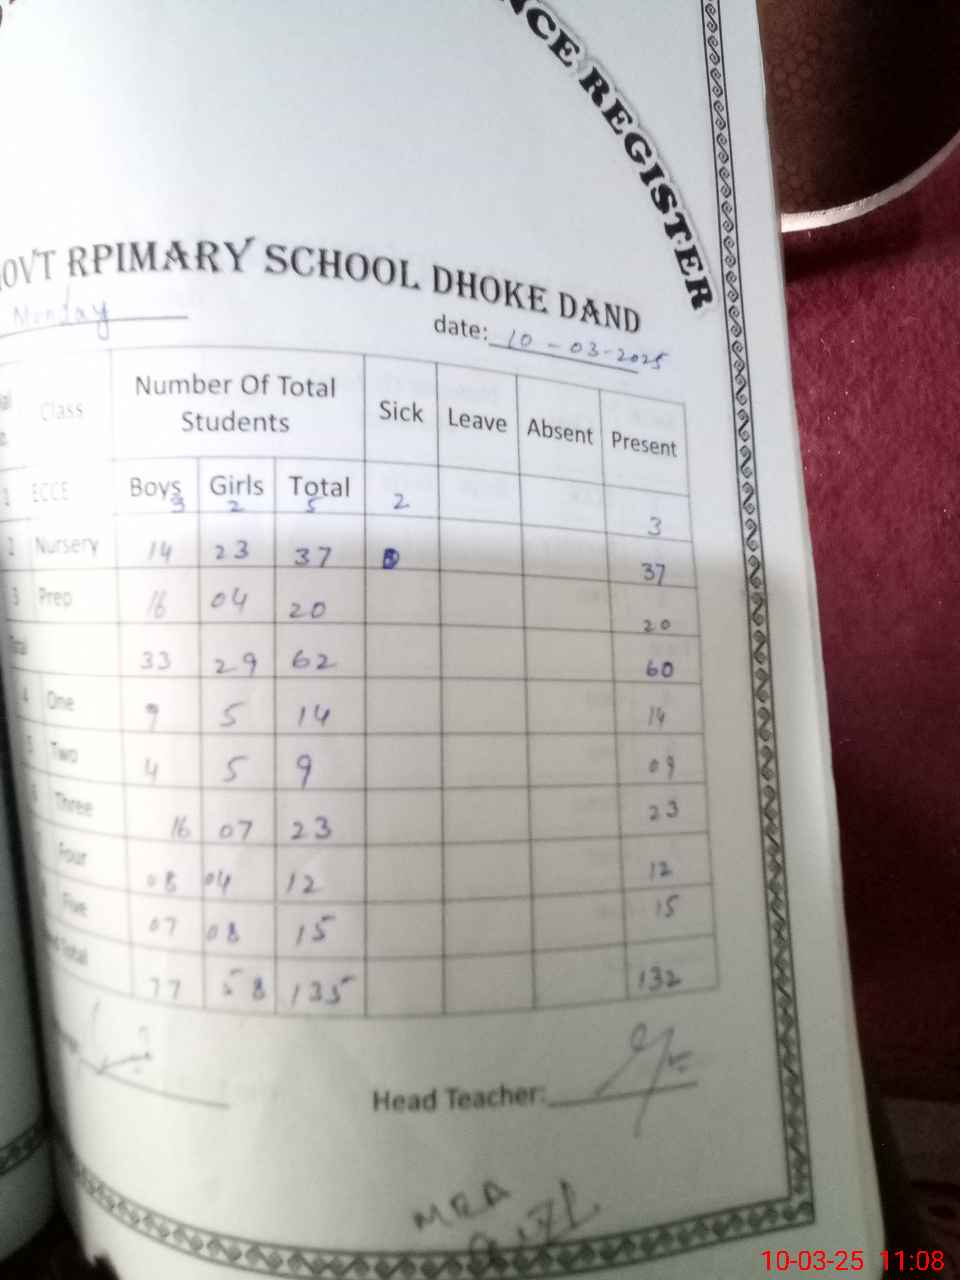 NCE REGISTER
OVT RPIMARY SCHOOL DHOKE DAND
Monday
date: 10-03-2025
Class Number Of Total Students Sick Leave Absent Present
1 ECCE Boys Girls Total
3 2 5 2 3
2 Nursery 14 23 37 37
3 Prep 16 04 20 20
33 29 62 60
4 One 9 5 14 14
Two 4 5 9 09
Three 16 07 23 23
Four 08 04 12 12
Five 07 08 15 15
Total 77 58 135 132
Head Teacher:
MEA
10-03-25 11:08